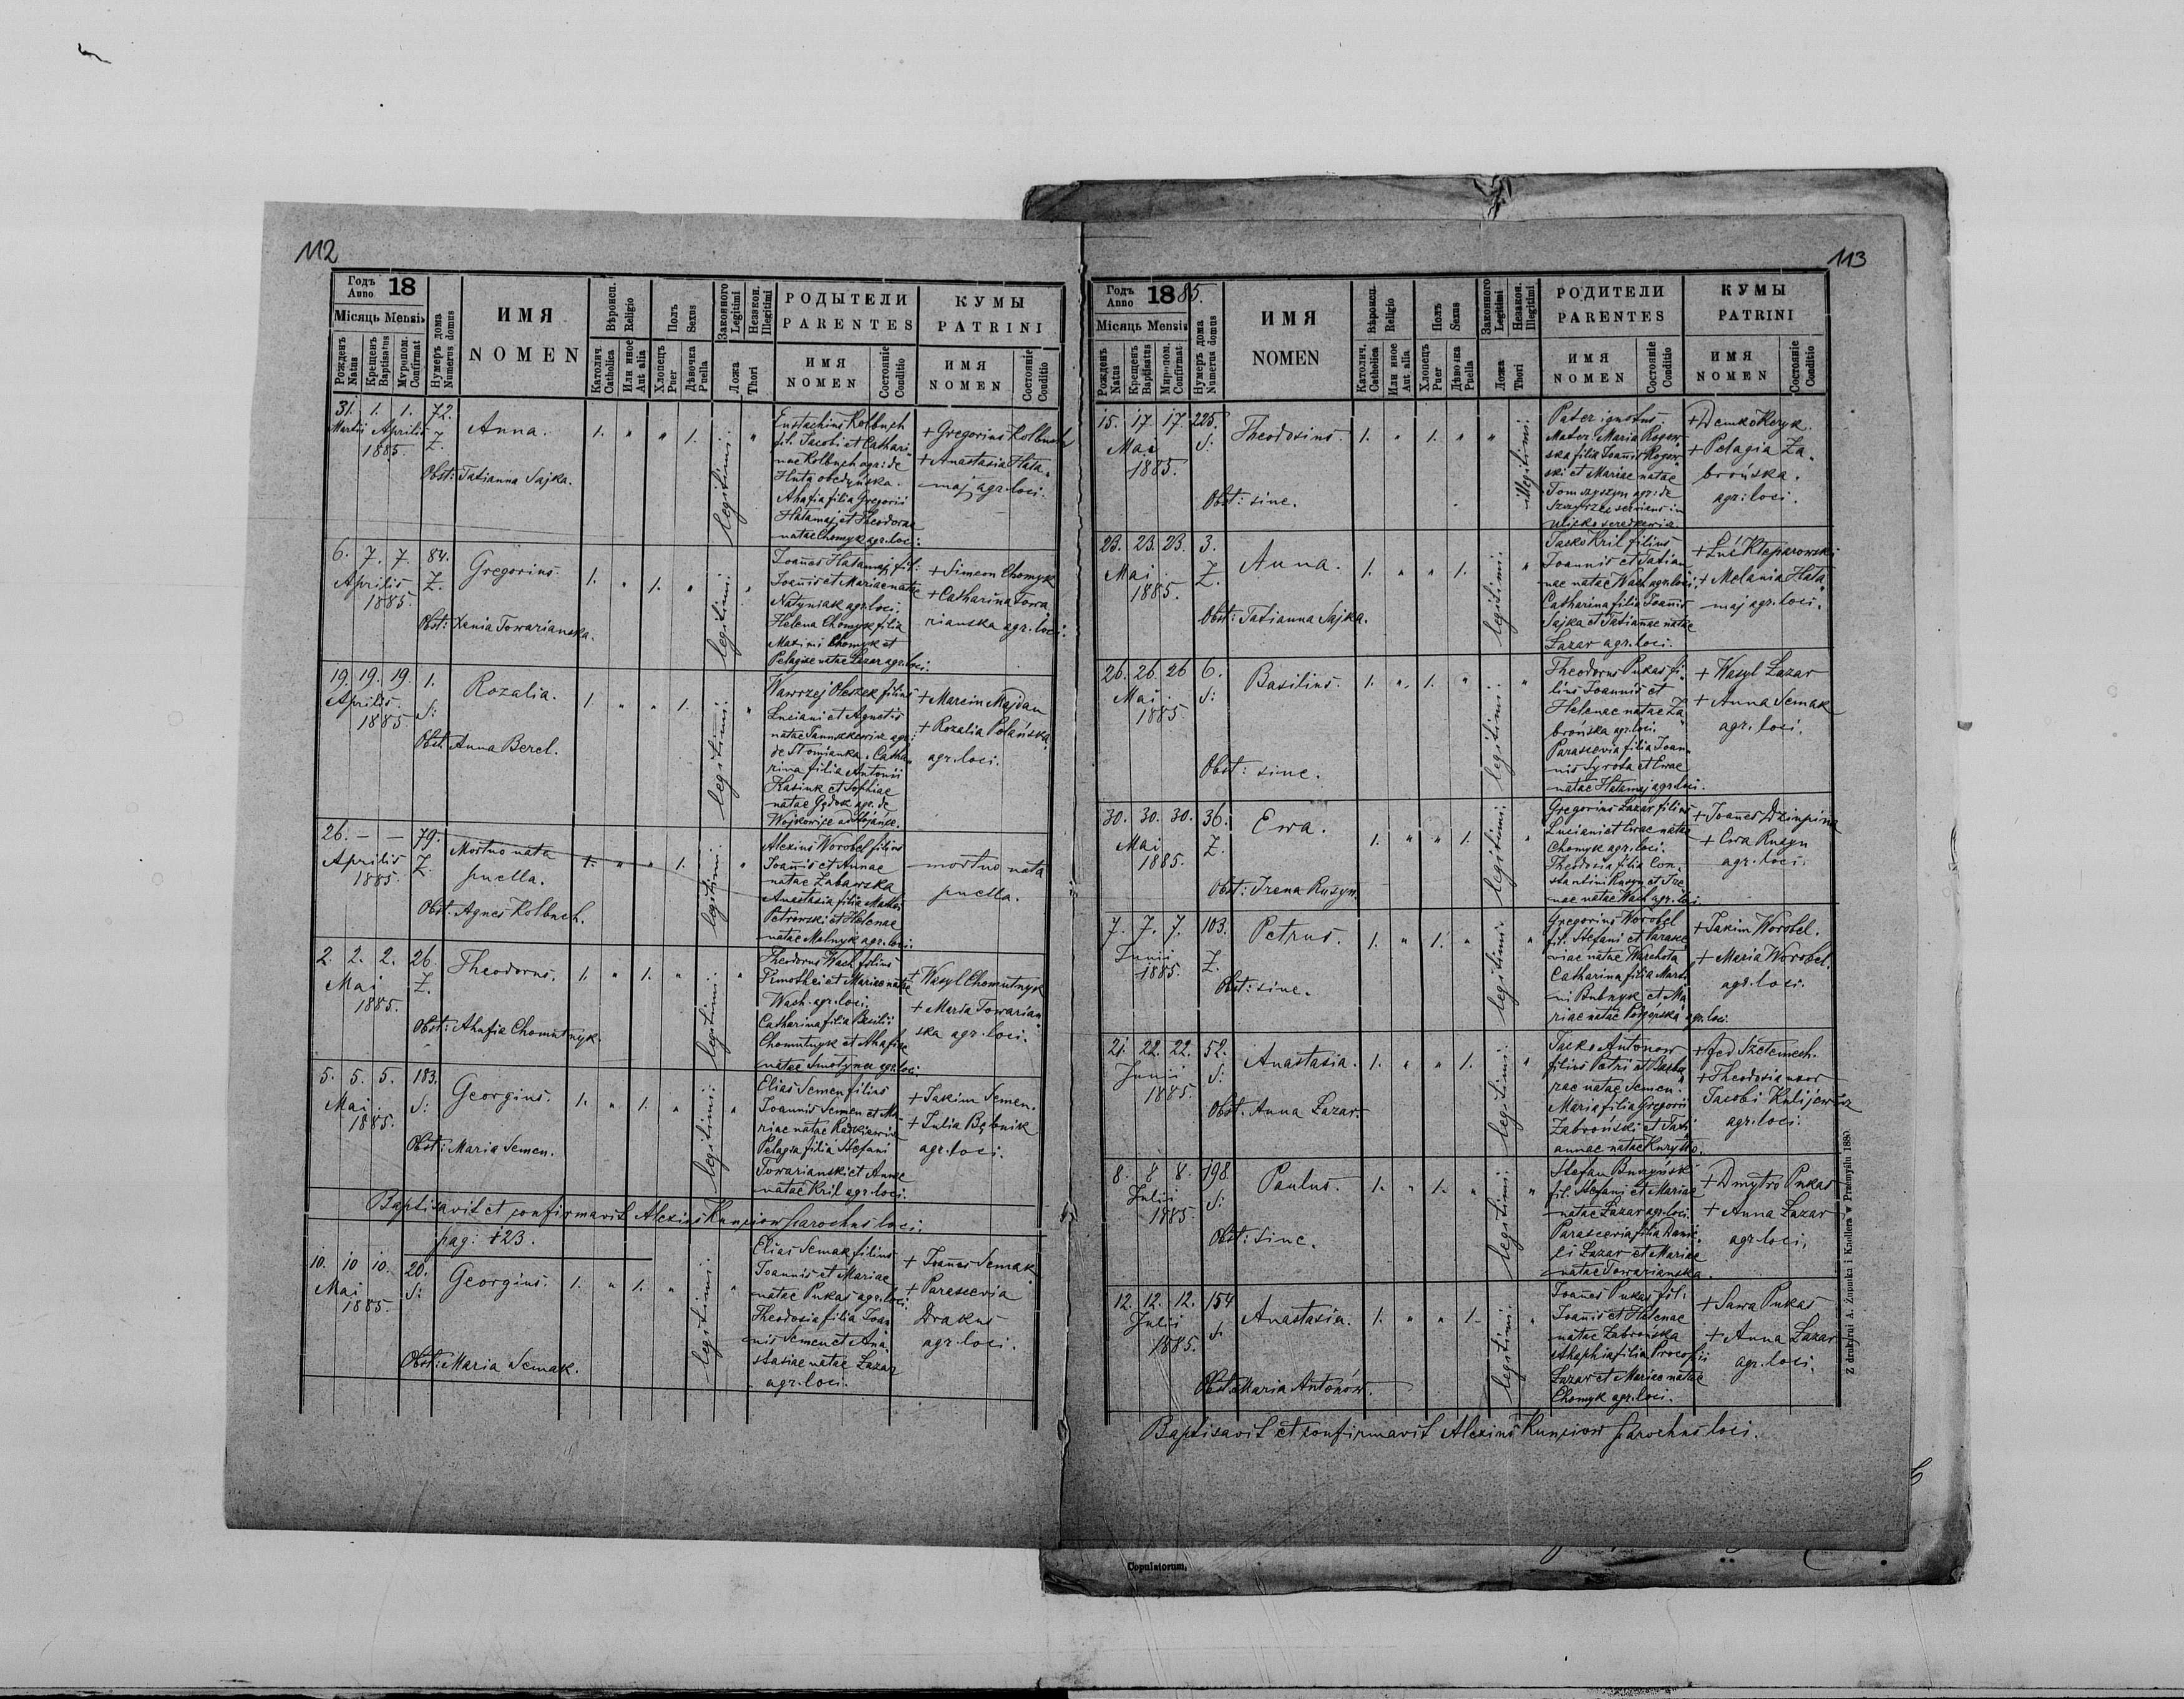 112
Годъ Anno 18
Місяць Mensis
Рожденъ Natus
Крещенъ Baptisatus
Мѵропом. Confirmat
Нумеръ дома Numerus domus
ИМЯ
NOMEN
Вѣроисп. Religio
Католич. Catholica
Или иное Aut alia
Полъ Sexus
Хлопецъ Puer
Дѣвочка Puella
Законного Legitimi
Незакон. Illegitimi
Ложа Thori
РОДЫТЕЛИ
PARENTES
ИМЯ NOMEN
Состояніе Conditio
КУМЫ
PATRINI
ИМЯ NOMEN
Состояніе Conditio
31. 1. 1. 72.
Martii Aprilis Z.
1885.
Anna.
1. " " 1.
legitimi.
Obst: Tatianna Sajka.
Eustachius Kolbuch
fil. Jacobi et Cathari
nae Kolbuch agr: de
Huta obedyńska.
Ahafia filia Gregorii
Hatamaj et Theodorae
natae Chomyk agr. loci.
+ Gregorius Kolbuch
+ Anastasia Hata
maj agr. loci.
6. 7. 7. 84.
Aprilis Z.
1885.
Gregorius.
1. " 1. "
legitimi.
Obst: Xenia Towarianska.
Joannes Hatamaj fil:
Joannis et Mariae natae
Natyniak agr. loci,
Helena Chomyk filia
Maximi Chomyk et
Pelagiae natae Lazar agr. loci.
+ Simeon Chomyk
+ Catharina Towa
rianska agr. loci.
19. 19. 19. 1.
Aprilis S:
1885
Rozalia.
1. " " 1.
legitimi.
Obst: Anna Berel.
Wawrzej Oleszek filius
Luciani et Agnetis
natae Januszkewicz agr:
de Słomianka. Catha
rina filia Antonii
Kasiuk et Sophiae
natae agr. de
+ Marcin Majdan
+ Rozalia Polańska
agr. loci.
26. – – 79.
Aprilis Z.
1885.
Mortuo nata
puella.
1. " " 1.
legitimi.
Obst: Agnes Kolbuch.
Alexius Worobel filius
Joannis et Annae
natae Zabawska
Anastasia filia Mathei
Petrowski et Helenae
natae Melnyk agr. loci.
mortuo nata
puella.
2. 2. 2. 26.
Mai Z.
1885.
Theodorus.
1. " 1. "
legitimi.
Obst: Ahafia Chomutnyk.
Theodorus Wach filius
Timothei et Mariae natae
Wach agr. loci,
Catharina filia Basilii
Chomutnyk et Ahafiae
natae agr. loci.
+ Wasyl Chomutnyk
+ Maria Towarian
ska agr. loci.
5. 5. 5. 183.
Mai S:
1885.
Georgius.
1. " 1. "
legitimi.
Obst: Maria Semen.
Elias Semen filius
Joannis Semen et Ma
riae natae Radkiewicz
Pelagia filia Stefani
Towarianski et Annae
natae Kril agr. loci.
+ Jakim Semen.
+ Julia Bębnik
agr. loci.
Baptisavit et confirmavit Alexius Kunciow parochus loci.
pag: 123.
10. 10 10. 20.
Mai S:
1885.
Georgius.
1. " 1. "
legitimi.
Obst: Maria Semak.
Elias Semak filius
Joannis et Mariae
natae Pukas agr. loci.
Theodosia filia Joan
nis Semen et Ana
stasiae natae Lazar
agr. loci.
+ Joannes Semak
+ Parascevia
Drakus
agr. loci.
113
Годъ Anno 1885.
Місяць Mensis
Рожденъ Natus
Крещенъ Baptisatus
Миропом. Confirmat
Нумеръ дома Numerus domus
ИМЯ
NOMEN
Вѣроисп. Religio
Католич. Catholica
Или иное Aut alia
Полъ Sexus
Хлопецъ Puer
Дѣвочка Puella
Законного Legitimi
Незакон. Illegitimi
Ложа Thori
РОДИТЕЛИ
PARENTES
ИМЯ NOMEN
Состояніе Conditio
КУМЫ
PATRINI
ИМЯ NOMEN
Состояніе Conditio
15. 17. 17. 225.
Mai S:
1885.
Theodosius.
1. " 1. " "
illegitimi.
Obst: sine.
Pater ignotus
Mater: Maria Rogow
ska filia Joannis Rogow
ski et Mariae natae
agr: de
+ Demko Keryk.
+ Pelagia Za
brońska.
agr: loci.
23. 23. 23. 3.
Mai Z.
1885.
Anna.
1. " " 1.
legitimi.
Obst: Tatianna Sajka.
Jasko Kril filius
Joannis et Tatian
nae natae Wach agr. loci,
Catharina filia Joannis
Sajka et Tatianae natae
Lazar agr. loci.
+ Luć Kleparowski
+ Melania Hata
maj agr. loci.
26. 26. 26 6.
Mai S:
1885.
Basilius.
1. " 1. "
legitimi.
Obst: sine.
Theodorus Pukas fi
lius Joannis et
Helenae natae Za
brońska agr. loci.
Parascevia filia Joan
nis Syrota et Ewae
natae Hatamaj agr. loci.
+ Wasyl Lazar
+ Anna Semak
agr. loci.
30. 30. 30. 36.
Mai Z.
1885.
Ewa.
1. " " 1.
legitimi.
Obst: Irena Rusyn.
Gregorius Lazar filius
Luciani et Ewae natae
Chomyk agr. loci.
Theodosia filia Con
stantini Rusyn et Ire
nae natae Wach agr. loci
+ Joannes Dziupina
+ Ewa Rusyn
agr. loci.
7. 7. 7. 103.
Junii Z.
1885.
Petrus.
1. " 1. "
legitimi.
Obst: sine.
Gregorius Worobel
fil. Stefani et Parasce
viae natae Warchoła
Catharina filia Marti
ni Bubnyk et Ma
riae natae Podgórska agr. loci.
+ Jakim Worobel.
+ Maria Worobel.
agr. loci.
21. 22. 22. 52.
Junii S:
1885.
Anastasia.
1. " " 1.
legitimi.
Obst. Anna Lazar.
Jacko Antonow
filius Petri et Barba
rae natae Semen.
Maria filia Gregorii
Zabroński et Tati
annae natae Kuryłło.
+ Fed Szelemech.
+ Theodosia uxor
Jacobi Kulijewicz
agr. loci.
8. 8 8. 198
Julii S:
1885.
Paulus.
1. " 1. "
legitimi.
Obst: sine.
Stefan Buszyński
fil. Stefani et Mariae
natae Lazar agr. loci.
Parascevia filia Danie
li Lazar et Mariae
natae Towarianska.
+ Dmytro Pukas
+ Anna Lazar
agr. loci.
12. 12. 12. 154
Julii S.
1885.
Anastasia.
1. " " 1.
legitimi.
Obst: Maria Antonów.
Joannes Pukas fil.
Joannis et Helenae
natae Zabrońska
Ahaphia filia Procopii
Lazar et Mariae natae
Chomyk agr. loci.
+ Sawa Pukas
+ Anna Lazar
agr. loci.
Baptisavit et confirmavit Alexius Kunciow parochus loci.
Z drukarni A. Żupnika i Knollera w Przemyślu 1880.
Copulatorum,